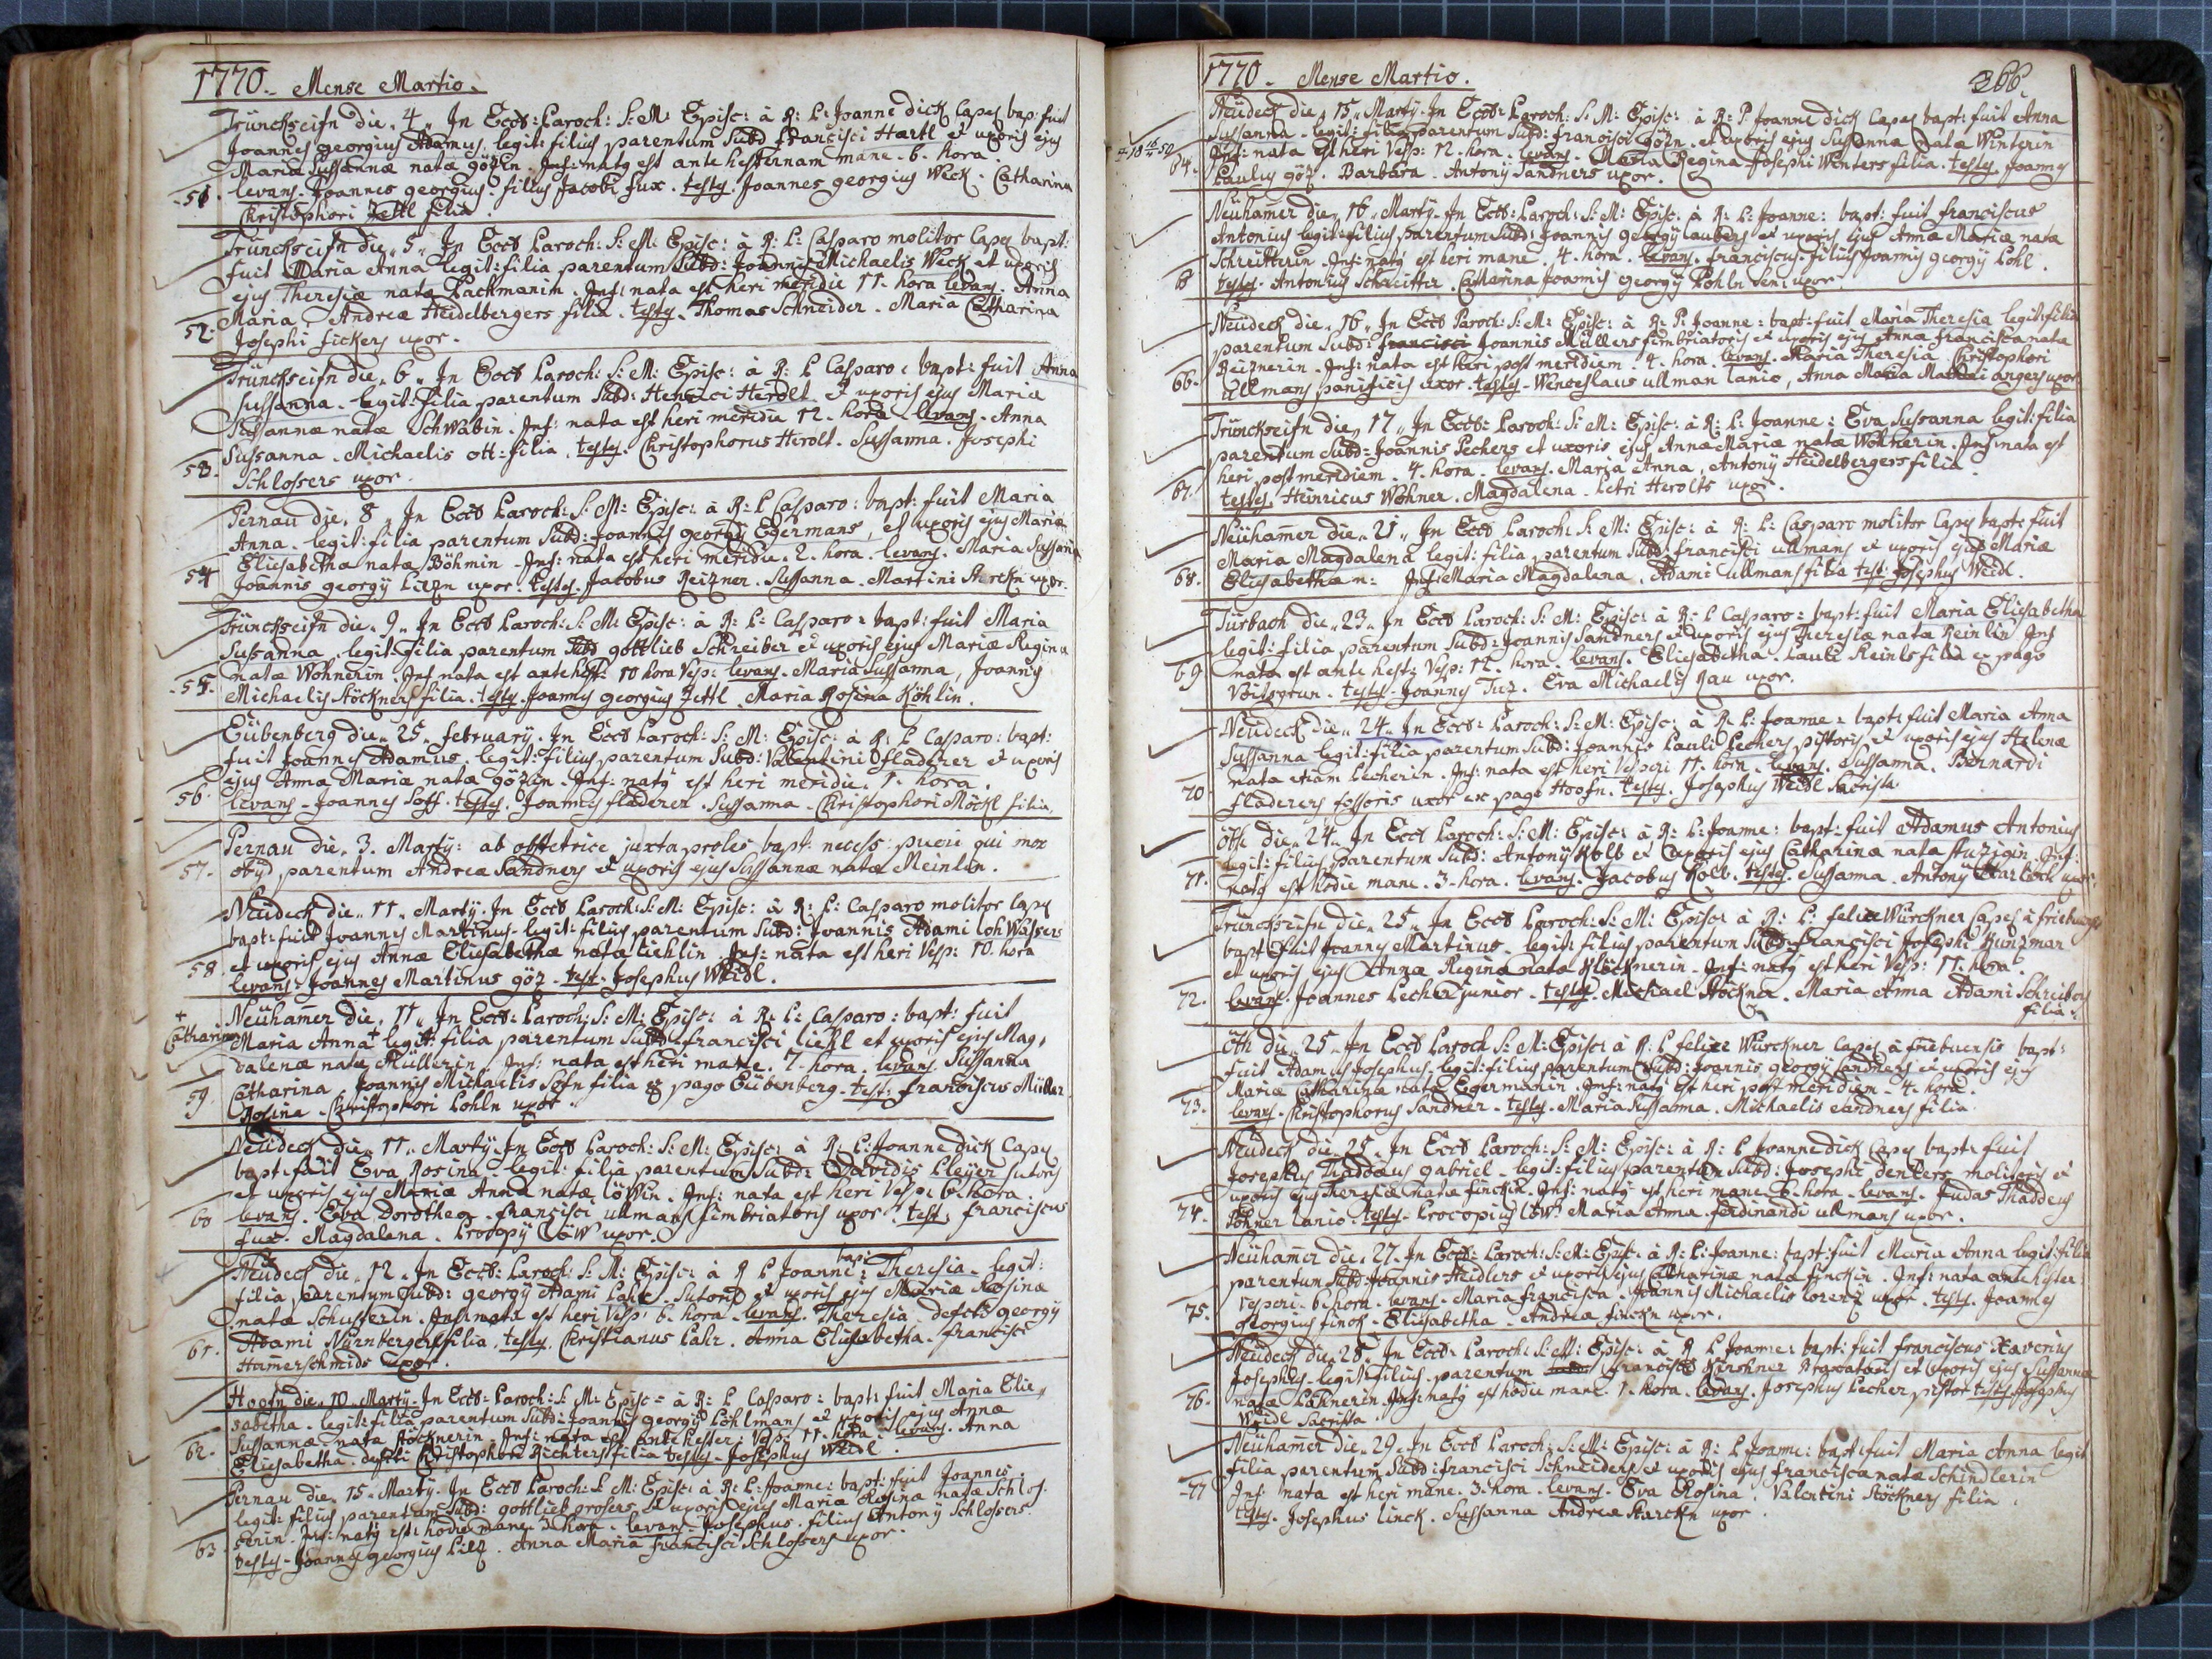 1770. Mense Martio.
Trünckseifn die 4. In Eccł: Paroch: S: M: Episc: à R: P: Joanne dick Capel bap: fuit
Joannes georgius Adamus. legit: filius parentum Subd Francisci Hartl et uxoris ejus
Maria Sussannæ natæ gözin. Inf: natus est ante hesternam mane. 6. hora.
51. levans. Joannes georgius filius Jacobi fux. testes. Joannes georgius Weck. Catharina
Christophori Zettl filia.
Trünckseifn die 5. In Eccł Paroch: S: M: Episc: à R: P: Casparo molitor Capel bapt:
fuit Maria Anna legit: filia parentum Subd: Joannis Michaelis Weck et uxoris
ejus Theresiæ natæ Packmanin. Inf: nata est heri meridie 11. hora levans. Anna
52. Maria. Andreæ Heidelbergers filia. testes. Thomas Schneider. Maria Catharina
Josephi fickers uxor.
Trünckseifn die 6. In Eccł Paroch: S: M: Episc: à R: P Casparo: bapt: fuit Anna
Sussanna. legit: filia parentum Subd: Henrici Herolt et uxoris ejus Maria
Sussannæ natæ Schwabin. Inf: nata est heri meridie 12. hora. levans. Anna
53. Sussanna. Michaelis ott: filia. testes. Christophorus Herolt. Sussanna. Josephi
Schlossers uxor.
Pernau die 8. In Eccł Paroch: S: M: Episc: à R: P Casparo: bapt: fuit Maria
Anna. legit: filia parentum Subd: Joannis georgÿ Egermans, et uxoris ejus Mariæ
Eliesabethæ natæ Böhmin. Inf: nata est heri meridie. 2. hora. levans. Maria Sussanna
54 Joannis georgÿ uxor. testes. Jacobus Reizner. Sussanna. Martini Starckn uxor.
Trünckseifn die 9. In Eccł Paroch: S: M: Episc: à R: P: Casparo: bapt: fuit Maria
Sussanna, legit: filia parentum Subd gottlieb Schreiber et uxoris ejus Mariæ Regina
natæ Wohnerin. Inf nata est ante hest: 10 hora Vesp: levans. Maria Sussanna, Joannis
55. Michaelis Stöckners filia. testes. Joannes georgius Zettl. Maria Rosina Köhlin.
Eübenberg die 25. februarÿ. In Eccł Paroch: S: M: Episc: à R: P Casparo: bapt:
fuit Joannes Adamus. legit: filius parentum Subd: Valentini fladerer et uxoris
ejus Anna Mariæ natæ gözin. Inf: natus est heri meridie. 1. hora.
56. levans. Joannes testes. Joannes fladerer. Sussanna. Christophori Möckl filia.
Pernau die. 3. Martÿ: ab obstetrice juxta proles bapt: necess: pueri qui mox
57. obÿd parentum Andreæ Sandners et uxoris ejus Sussannæ natæ Reinlin.
Neudeck die 11. Martÿ. In Eccł Paroch: S: M: Episc: à R: P: Casparo molitor Capel
bapt: fuit Joannes Martinus. legit: filius parentum Subd: Joannis Adami lohWassers
et uxoris ejus Annæ Eliesabethæ natæ liehlin Inf: nata est heri Vesp: 10. hora
58. levans. Joannes Martinus göz. test. Josephus Weidl.
Neühamer die 11. In Eccł: Paroch: S: M: Episc: à R: P: Casparo: bapt: fuit
+ Catharina
Maria Anna + legit: filia parentum Subd: francisci liehl et uxoris ejus Mag,
dalenæ natæ Müllerin. Inf: nata est heri mane. 7. hora. levans. Sussanna
59. Catharina. Joannis Michaelis filia ex pago Eübenberg. test: franciscus Müller
Rosina. Christophori Pohln uxor.
Neüdeck die 11. Martÿ. In Eccł Paroch: S: M: Episc: à R: P: Joanne dick Capel
bapt: fuit Eva Rosina. legit: filia parentum Subd: Davidis Pleÿer Sutoris
et uxoris ejus Mariæ Anna natæ löWin. Inf: nata est heri Vesp: 6. hora.
60 levans. Eva Dorothea. francisci ullmans fimbriatoris uxor. test: franciscus
fux. Magdalena. Procopÿ Löw uxor.
Neüdeck die 12. In Eccł: Paroch: S: M: Episc: à R P Joanne: bapt: Theresia. legit:
filia parentum Subd: georgÿ Adami Pahr. Sutoris et uxoris ejus Mariæ Rosinæ
natæ Schusterin. Inf: nata est heri Vesp: 6. hora. levans. Theresia defcti georgÿ
61. Adami Nürnbergers filia. testes. Christianus Pahr. Anna Eliesabetha. francisci
Hamerschmids uxor.
Hoofn die 10. Martÿ. In Eccł: Paroch: S: M: Episc: à R: P Casparo: bapt: fuit Maria Elie,
sabetha. legit: filia parentum Subd: Joannis georgÿ Pöhlmans et uxoris ejus Annæ
Sussannæ natæ Stöcknerin. Inf: nata est ante hester: Vesp: 11. hora. levans. Anna
62. Eliesabetha. defcti Christophori Richters filia testes. Josephus Weidl.
Pernau die 15. Martÿ. In Eccł Paroch: S: M: Episc: à R: P: Joanne: bapt: fuit Joannes
legit: filius parentum Subd: gottlieb grosers et uxoris ejus Mariæ Rosina natæ Schlos,
serin. Inf: natus est hodie mane 3 hora. levans. Josephus. filius Antonÿ Schlossers.
63. testes. Joannes georgius Anna Maria francisci Schlossers uxor.
1770. Mense Martio. 266.
Neüdeck die 15. Martÿ. In Eccł: Paroch: S: M: Episc: à R: P Joanne dick Capel bapt: fuit Anna
Sussanna. legit: filia parentum Subd: francisci gözn. et uxoris ejus Sussanna natæ Winterin
Inf: nata est heri Vesp: 12. hora. levans. Maria Regina Josephi Winters filia. testes. Joannes
64. Paulus göz. Barbara. Antonÿ Sandners uxor.
Neühamer die 16. Martÿ. In Eccł: Paroch: S: M: Episc: à R: P: Joanne: bapt: fuit franciscus
Antonius legit: filius parentum Subd: Joannis georgÿ laubers et uxoris ejus Anna Mariæ nata
Schreitterin. Inf: natus est heri mane. 4. hora. levans. franciscus. filius Joannis georgÿ Pohl.
testes. Antonius Schreitter. Catharina Joannis georgÿ Pohln Seni uxor.
Neüdeck die 16. In Eccł Paroch: S: M: Episc: à R: P: Joanne: bapt: fuit Maria Theresia legit: filia
parentum Subd: francisci Joannis Müllers fimbriatoris et uxoris ejus Anna francisca nata
Reiznerin. Inf: nata est heri post meridiem. 4. hora. levans. Maria Theresia Christophori
66. Ullmans panificis uxor. testes. Wenceslaus ullman lanio, Anna Maria Mathæi angers uxor
Trünckseifn die 17. In Eccł: Paroch: S: M: Episc: à R: P: Joanne: Eva Sussanna legit: filia
parentum Subd: Joannis Pechers et uxoris ejus Annæ Mariæ natæ Wohnerin. Inf nata est
heri post meridiem. 4. hora. levans. Maria Anna, Antonÿ Heidelbergers filia.
67. testes. Heinricus Wohner. Magdalena. Petri Herolts uxor.
Neühamer die 21. In Eccł Paroch: S: M: Episc: à R: P: Casparo molitor Capel bapt: fuit
Maria Magdalena legit: filia parentum Subd: francisci ullmans et uxoris ejus Mariæ
68. Eliesabethæ n: Inf: Maria Magdalena. Adami ullmans filia test: Josephus Weidl.
Türbach die 23. In Eccł Paroch: S: M: Episc: à R: P Casparo: bapt: fuit Maria Eliesabetha
legit: filia parentum Subd: Joannis Sandners et uxoris ejus Theresiæ natæ Reinlin Inf
nata est ante hest: Vesp: 12. hora. levans. Eliesabetha. Pauli Reinls filia ex pago
69 Voitsgrun. testes. Joannes Tuz. Eva Michaelis Rau uxor.
Neudeck die 24. In Eccł: Paroch: S: M: Episc: à R: P: Joanne: bapt: fuit Maria Anna
Sussanna legit: filia parentum Subd: Joannis Pauli Pechers pistoris et uxoris ejus Helenæ
nata etiam Pecherin. Inf: nata est heri Vesperi 11. hora. levans. Sussanna. Bernardi
70 fladerers fossoris uxor ex pago Hoofn. testes. Josephus Weidl Sacrista
öth die 24. In Eccł Paroch: S: M: Episc: à R: P: Joanne: bapt: fuit Adamus Antonius
legit: filius parentum Subd: Antonÿ Kolb et uxoris ejus Catharinæ nata Inf:
71. natus est hodie mane. 3. hora. levans. Jacobus Kolb. testes. Sussanna. Antonÿ uxor.
Trünckseifn die 25. In Eccł Paroch: S: M: Episc: à R: P: felice Würckner Capel à
bapt fuit Joannes Martinus. legit: filius parentum Subd: francisci Josephi Kunzman
et uxoris ejus Annæ Regina natæ Klöcknerin. Inf: natus est heri Vesp: 11. hora.
72. levans. Joannes Pecher junior. testes. Michael Stöckner. Maria Anna Adami Schreibers
filia.
öth die 25. In Eccł Paroch S: M: Episc: à R: P felice Würckner Capel à bapt:
fuit Adamus Josephus. legit: filius parentum Subd: Joannis georgÿ Sandners et uxoris ejus
Mariæ Catharina nata Egermanin. Inf: natus est heri post meridiem. 4. hora.
73. levans. Christophorus Sandner. testes. Maria Sussanna. Michaelis Sandners filia.
Neudeck die 25. In Eccł Paroch: S: M: Episc: à R: P Joanne dick Capel bapt: fuit
Josephus Thaddæus gabriel. legit: filius parentum Subd: Josephi denkers molitoris et
uxoris ejus Theresiæ natæ finckin. Inf: natus est heri mane. 6. hora. levans. Judas Thaddeus
74. Pöhner lanio. testes. Procopius löW. Maria Anna. ferdinandi ullmans uxor.
Neühamer die 27. In Eccł: Paroch: S: M: Episc: à R: P: Joanne: bapt: fuit Maria Anna legit: filia
parentum Subd: Joannis Heidlers et uxoris ejus Catharinæ nata finckin. Inf: nata ante hester:
Vesperi. 6. hora. levans. Maria francisca. Joannis Michaelis lorenz uxor. testes. Joannes
75. georgius finck. Eliesabetha. Andreæ finckn uxor.
Neudeck die 28. In Eccł: Paroch: S: M: Episc: à R P Joanne: bapt: fuit franciscus Xaverius
Josephus. legit: filius. parentum francisci Kirschner et uxoris ejus Sussannæ
76. natæ Lahnerin. Inf: natus est hodie mane. 1. hora. levans. Josephus Pecher pistor testes Josephus
Weidl Sacrista
Neühamer die 29. In Eccł Paroch: S: M: Episc: à R: P Joanne: bapt: fuit Maria Anna legit
filia parentum Subd: francisci Schneiders et uxoris ejus francisca natæ Schindlerin
77 Inf: nata est heri mane. 3. hora. levans. Eva Rosina. Valentini Stöckners filia.
testes. Josephus linck. Sussanna Andreæ Starckn uxor.